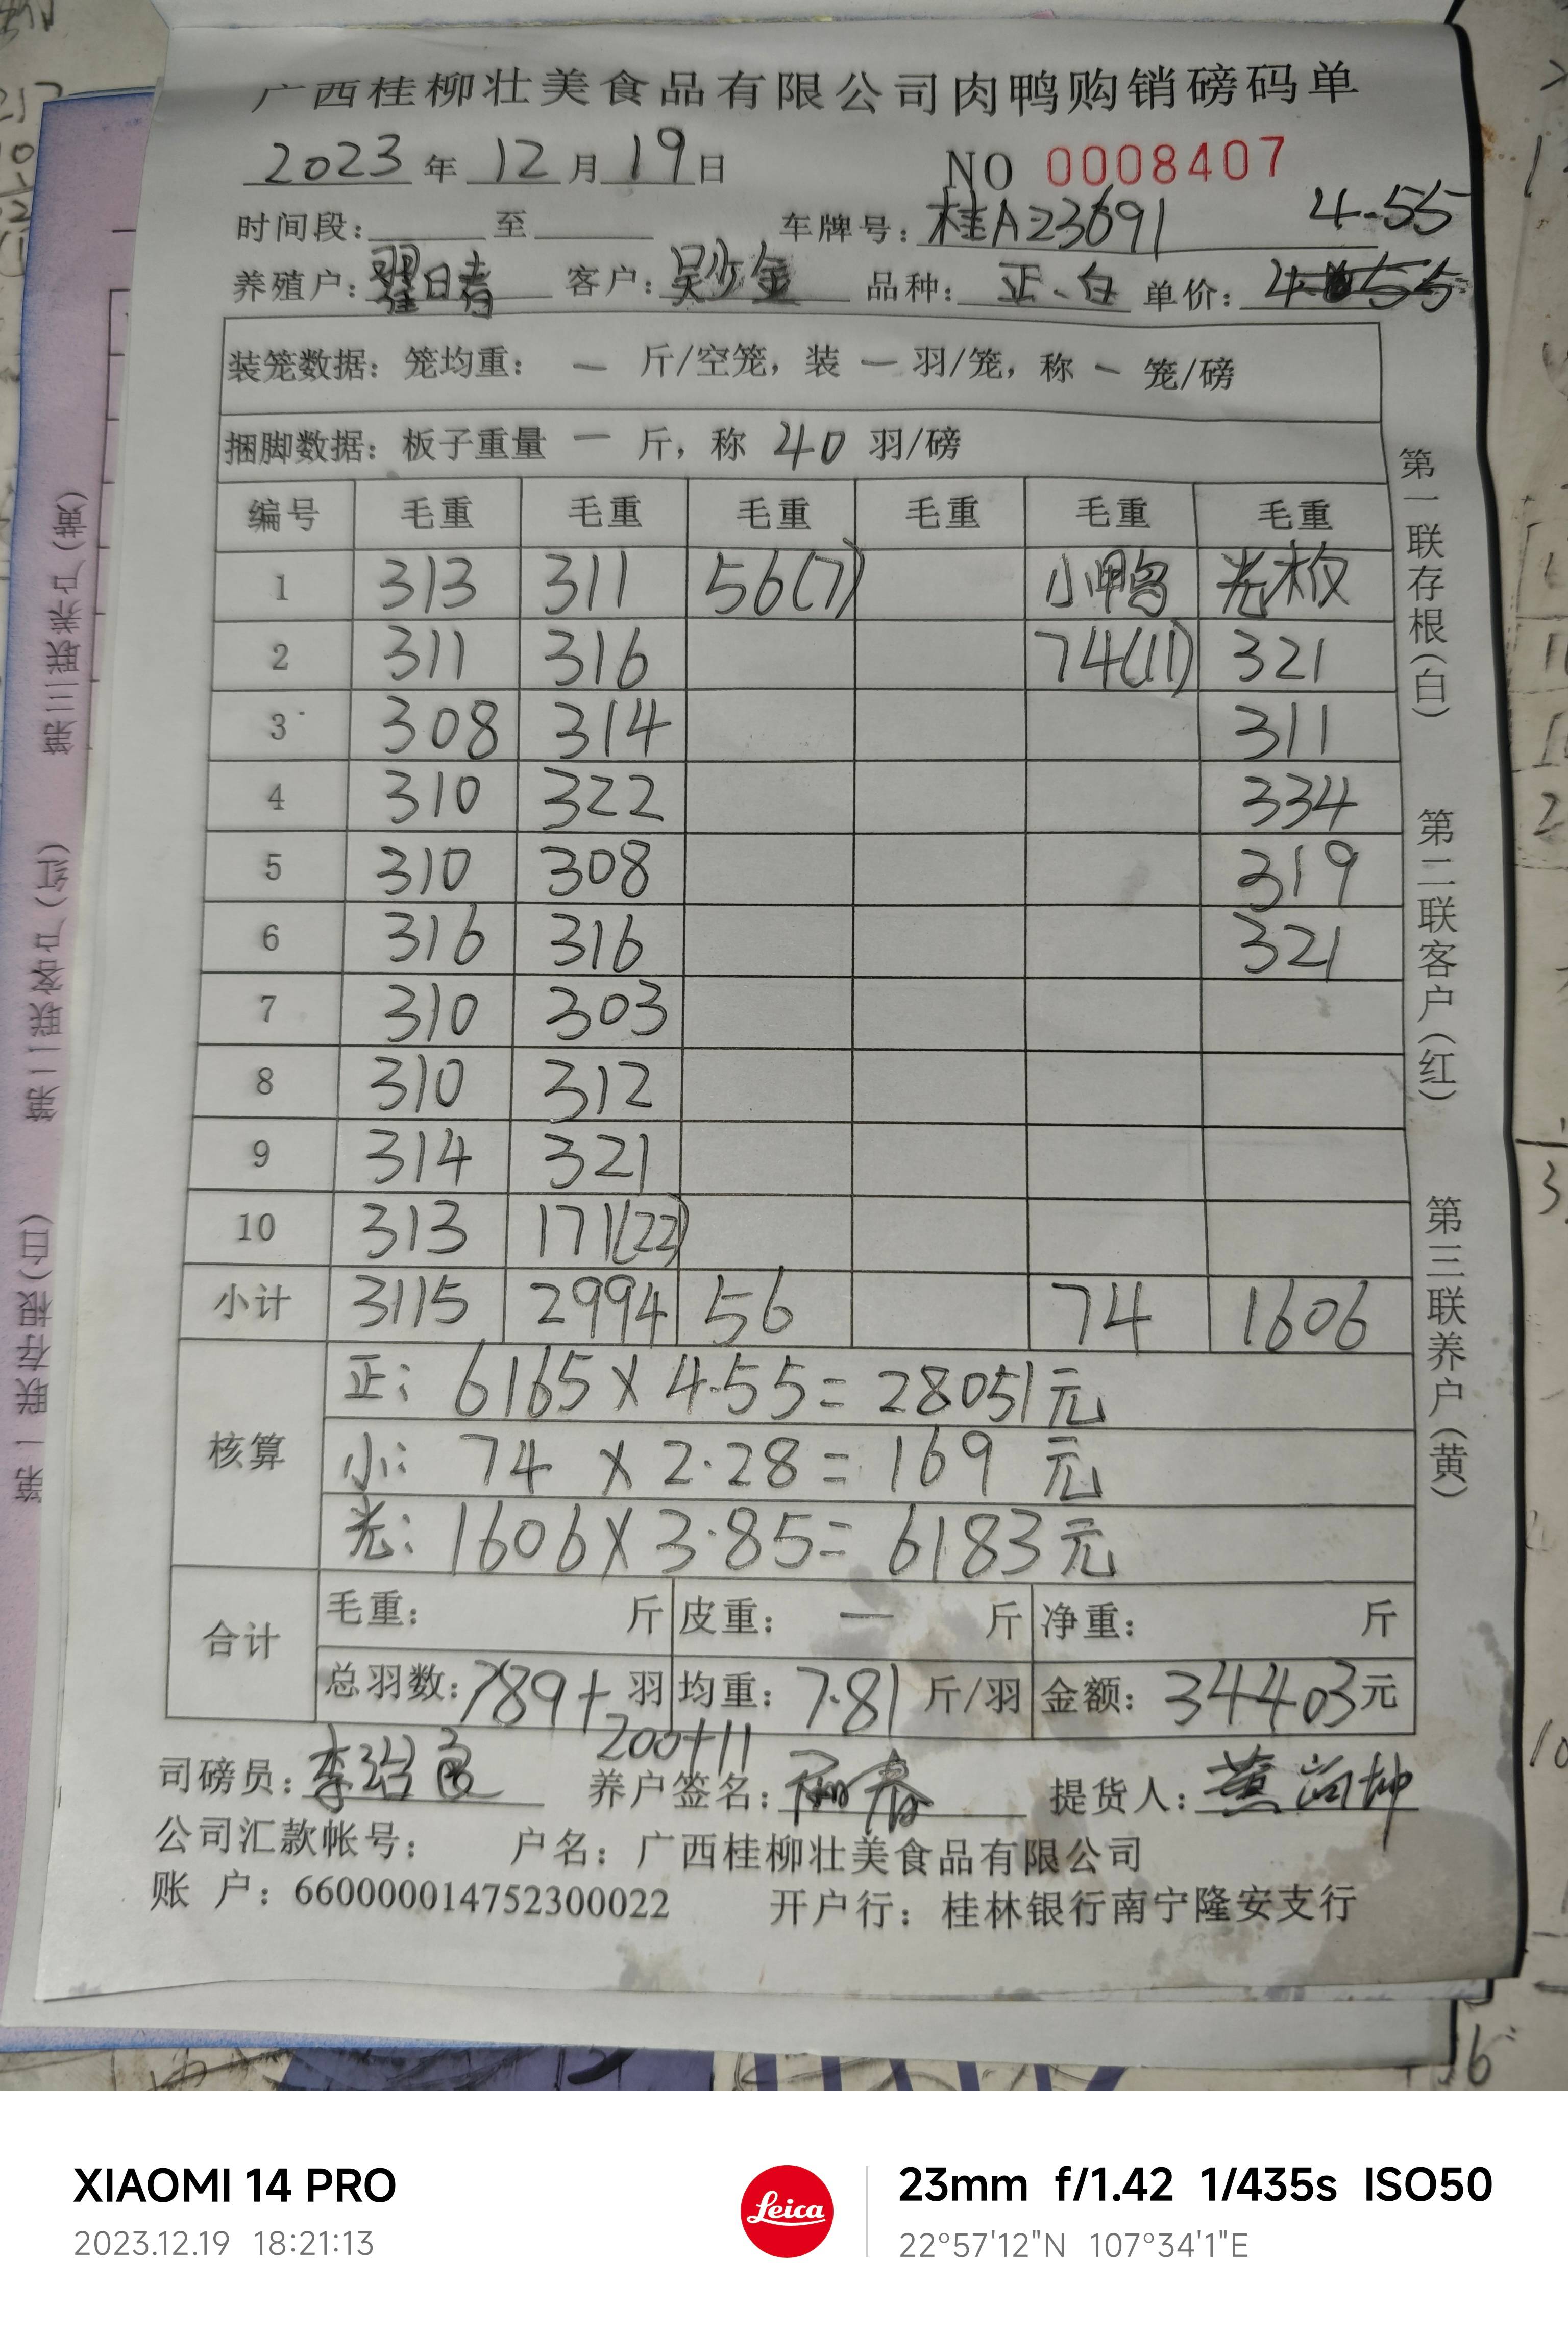 广西桂柳壮美食品有限公司肉鸭购销磅码单
2023年12月19日 NO 0008407
时间段: 至 车牌号: 桂A23691 4.55
养殖户: 客户: 品种: 正白 单价:
装笼数据: 笼均重: — 斤/空笼, 装 — 羽/笼, 称 — 笼/磅
捆脚数据: 板子重量 — 斤, 称 40 羽/磅
编号 毛重 毛重 毛重 毛重 毛重 毛重
1 313 311 56(7) 小鸭 光板
2 311 316 74(11) 321
3 308 314 311
4 310 322 334
5 310 308 319
6 316 316 321
7 310 303
8 310 312
9 314 321
10 313 171(22)
小计 3115 2994 56 74 1606
核算
正: 6165×4.55=28051元
小: 74×2.28=169元
光: 1606×3.85=6183元
合计
毛重: 斤 皮重: — 斤 净重: 斤
总羽数: 789+ 羽 均重: 7.81 斤/羽 金额: 34403元
200+11
司磅员: 养户签名: 提货人:
公司汇款帐号: 户名: 广西桂柳壮美食品有限公司
账 户: 660000014752300022 开户行: 桂林银行南宁隆安支行
第一联存根(白)
第二联客户(红)
第三联养户(黄)
第一联存根(白) 第二联客户(红) 第三联养户(黄)
XIAOMI 14 PRO
2023.12.19 18:21:13
Leica
23mm f/1.42 1/435s ISO50
22°57'12"N 107°34'1"E